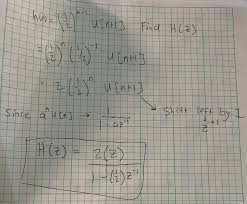 h(n) = (1/2)^{n-1} u[n+1] Find H(z)
= (1/2)^n (1/2)^{-1} u[n+1]
= 2 (1/2)^n u[n+1]
Since a^n u[n] → 1/(1-az^{-1})
Shift left by 1
z^{+1}
H(z) = 2(z)/(1-(1/2)z^{-1})